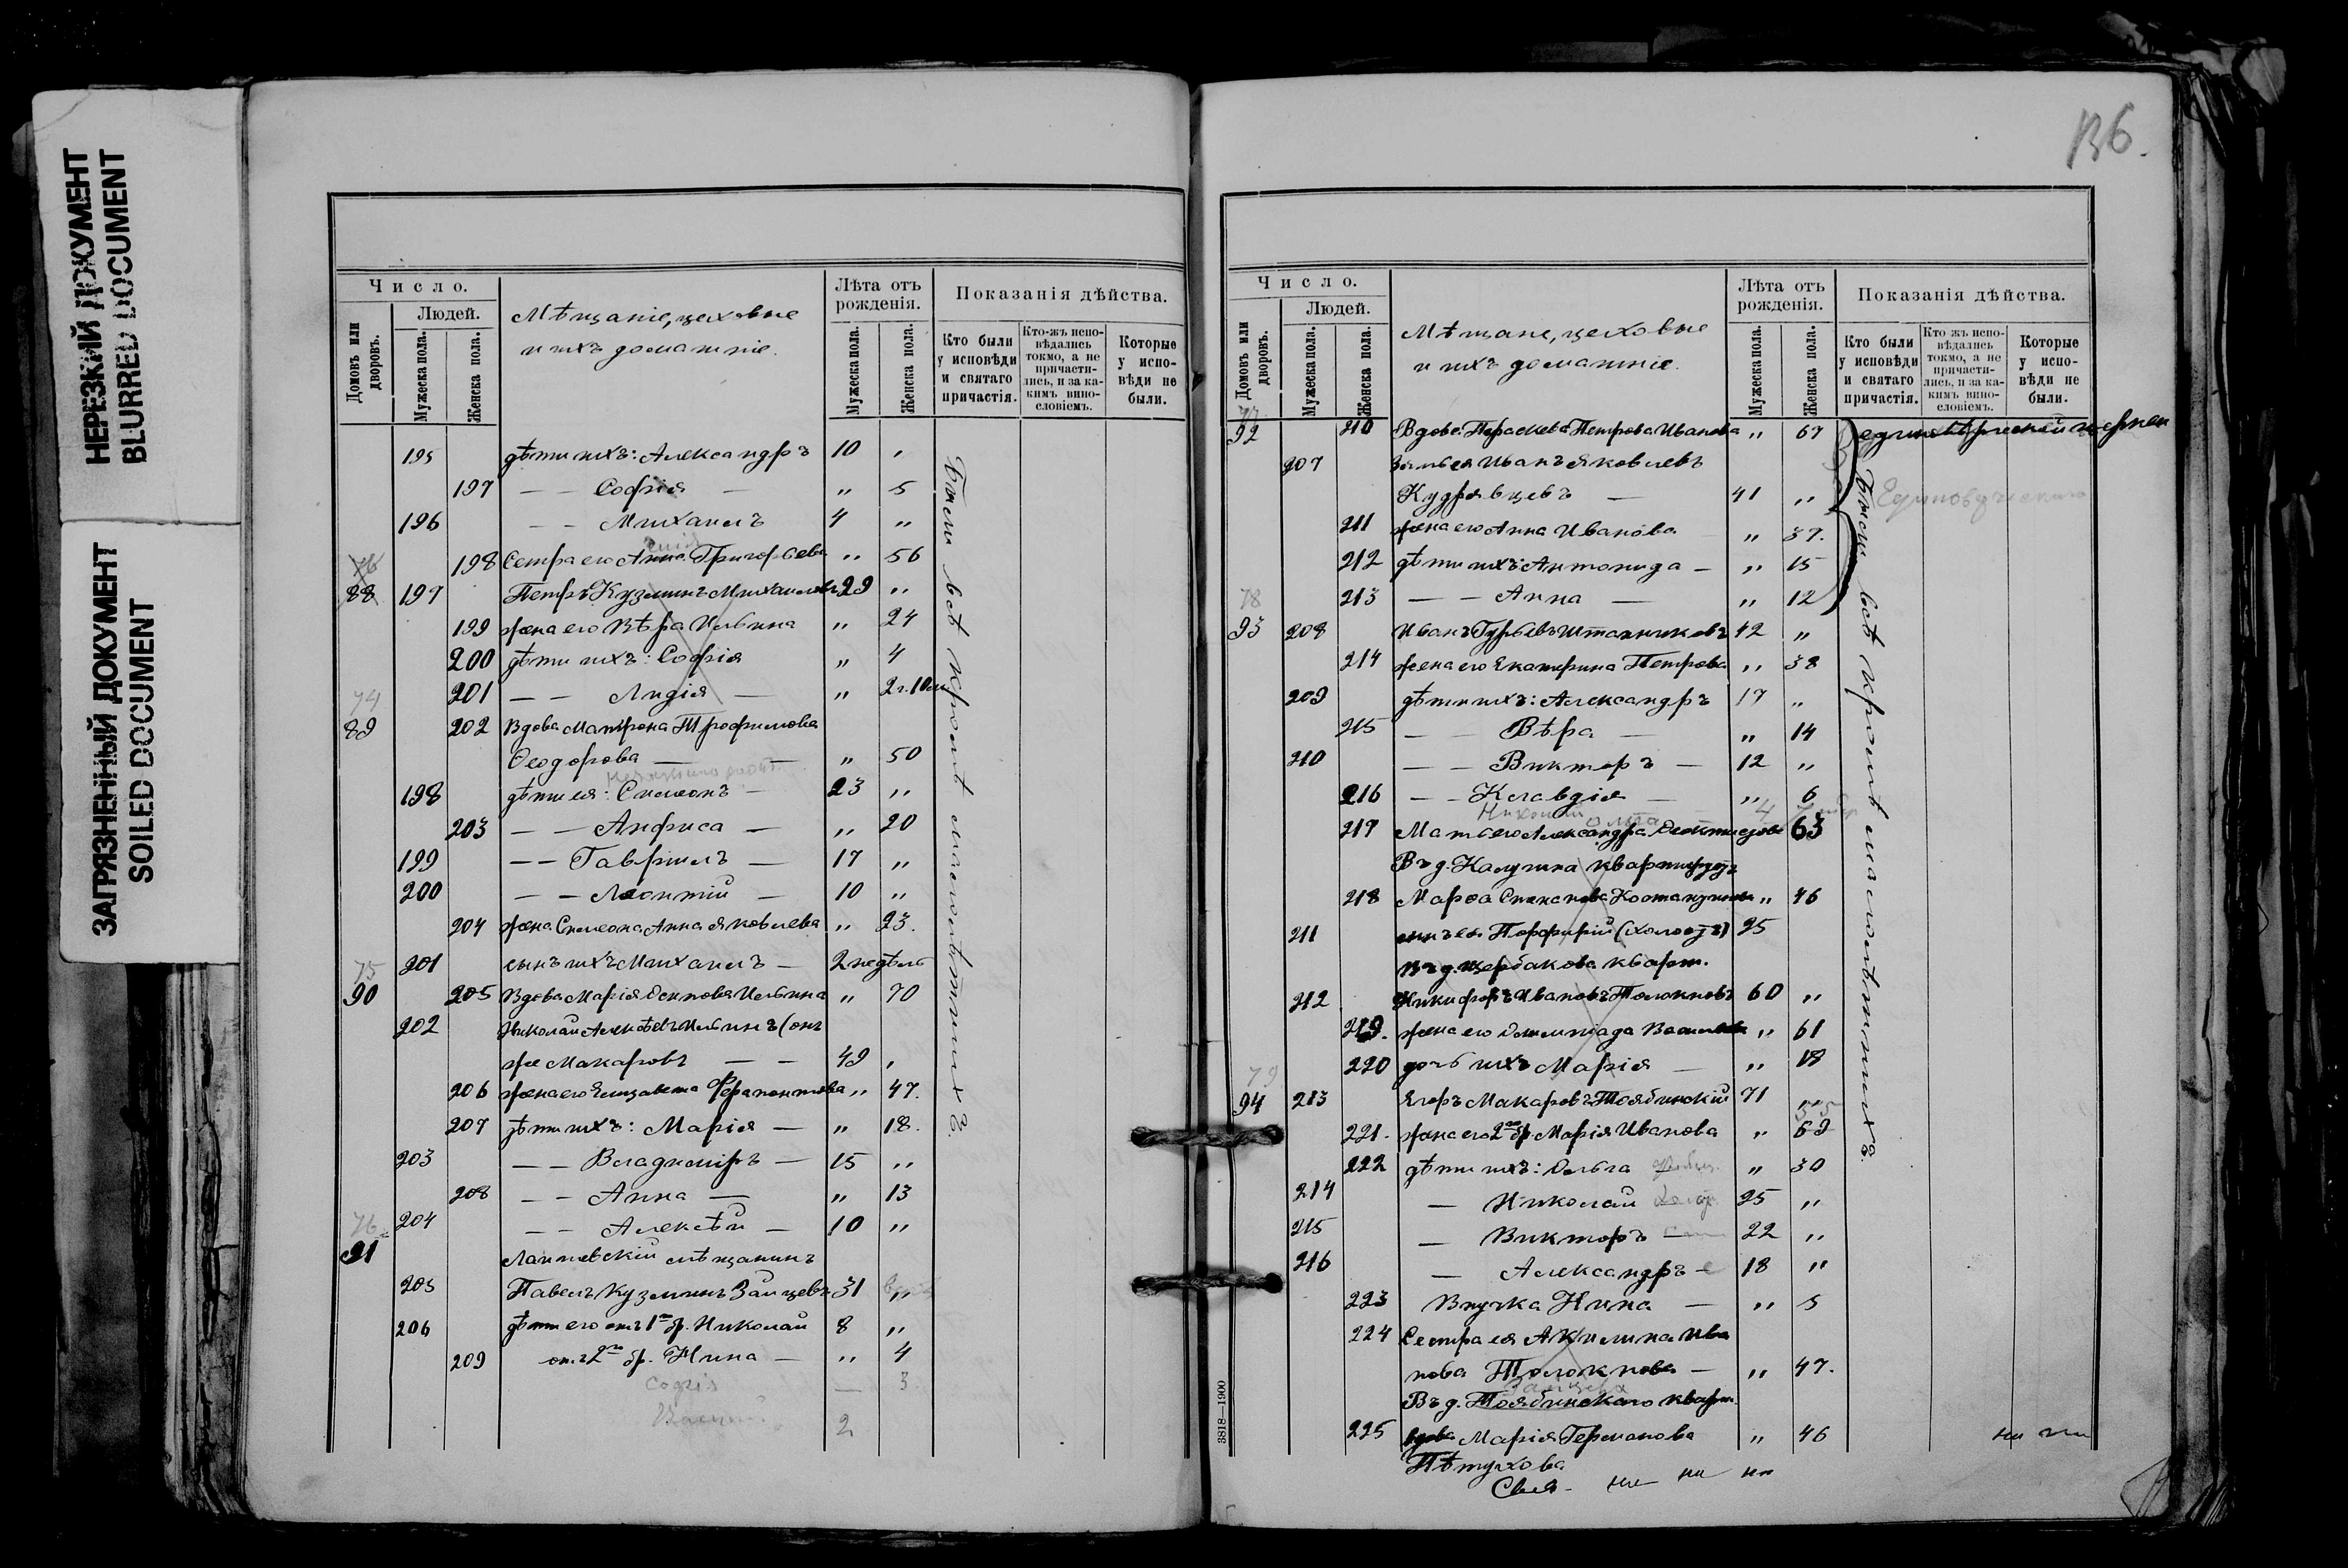 НЕРЕЗКИЙ ДОКУМЕНТ
BLURRED DOCUMENT
ЗАГРЯЗНЕННЫЙ ДОКУМЕНТ
SOILED DOCUMENT
Число.
Людей.
Домовъ или дворовъ.
Мужеска пола.
Женска пола.
Мѣщаніе, цеховые
и ихъ домашніе.
Лѣта отъ рожденія.
Мужеска пола.
Женска пола.
Показанія дѣйства.
Кто были у исповѣди и святаго причастія.
Кто-жъ исповѣдались токмо, а не причастились, и за какимъ винословіемъ.
Которые у исповѣди не были.
195 дѣти ихъ: Александръ 10 "
197 — — Софія — " 5
196 — — Михаилъ 4 "
198 Сестра его Анна Григорьева " 56
76
88 197 Петръ Кузминъ Михаиловъ 29 "
199 жена его Вѣра Ильина " 24
200 дѣти ихъ: Софія " 4
201 — — Лидія — " 2 г. 10 м.
74
89 202 Вдова Матрона Трофимова
Ѳеодорова — — " 50
198 дѣти ея: Симеонъ — 23 "
203 — — Анфиса — " 20
199 — — Гавріилъ — 17 "
200 — — Леонтій — 10 "
204 жена Симеона Анна Яковлева " 23.
201 сынъ ихъ Михаилъ — 2 недѣль
75
90 205 Вдова Марія Осипова Ильина " 70
202 Николай Алексѣевъ Ильинъ (онъ
же Макаровъ — — 49 "
206 жена его Елизавета Ферапонтова " 47.
207 дѣти ихъ: Марія — " 18.
203 — — Владиміръ — 15 "
208 — — Анна — " 13
204 — — Алексѣй — 10 "
76
91 Лаишевскій мѣщанинъ
205 Павелъ Кузминъ Зайцевъ 31 "
206 дѣти его отъ 1го бр. Николай 8 "
209 отъ 2го бр. Нина — " 4
Софія — 3
2
Были всѣ кромѣ малолѣтнихъ.
136.
Число.
Людей.
Домовъ или дворовъ.
Мужеска пола.
Женска пола.
Мѣщане, цеховые
и ихъ домашніе.
Лѣта отъ рожденія.
Мужеска пола.
Женска пола.
Показанія дѣйства.
Кто были у исповѣди и святаго причастія.
Кто жъ исповѣдались токмо, а не причастились, и за какимъ винословіемъ.
Которые у исповѣди не были.
77
92 210 Вдова Параскева Петрова Иванова " 67
207 Зять ея Иванъ Яковлевъ
Кудрявцевъ — 41 "
211 жена его Анна Иванова " 37.
212 дѣти ихъ: Антонида — " 15
213 — — Анна — " 12
78
93 208 Иванъ Гурьевъ Штанниковъ 42 "
214 жена его Екатерина Петрова " 38
209 дѣти ихъ: Александръ 17 "
215 — — Вѣра — " 14
210 — — Викторъ — 12 "
216 — — Клавдія — " 6
217 Мать его Александра 63
Въ д. Калугина
218 Марѳа 46
211 сынъ ея Порфирій (холостъ) 25
Въ д. Щербакова кварт.
212 Никифоръ Ивановъ Толокновъ 60 "
219. жена его Олимпіада Васильева " 61
220 дочь ихъ Марія — " 18
79
94 213 Егоръ Макаровъ Тоябинскій 71 "
221. жена его 2го бр. Марія Иванова " 59
222 дѣти ихъ: Ольга " 30
214 — Николай 25 "
215 — Викторъ 22 "
216 — Александръ 18 "
223 Внучка Нина — " 5
224 Сестра ея Акилина Ива
нова Толокнова — " 47.
Въ д. Тоябинскаго кварт.
225 вдова Марія Германова " 46
Пѣтухова
единовѣрческой церкви
Были всѣ кромѣ малолѣтнихъ.
3818—1900